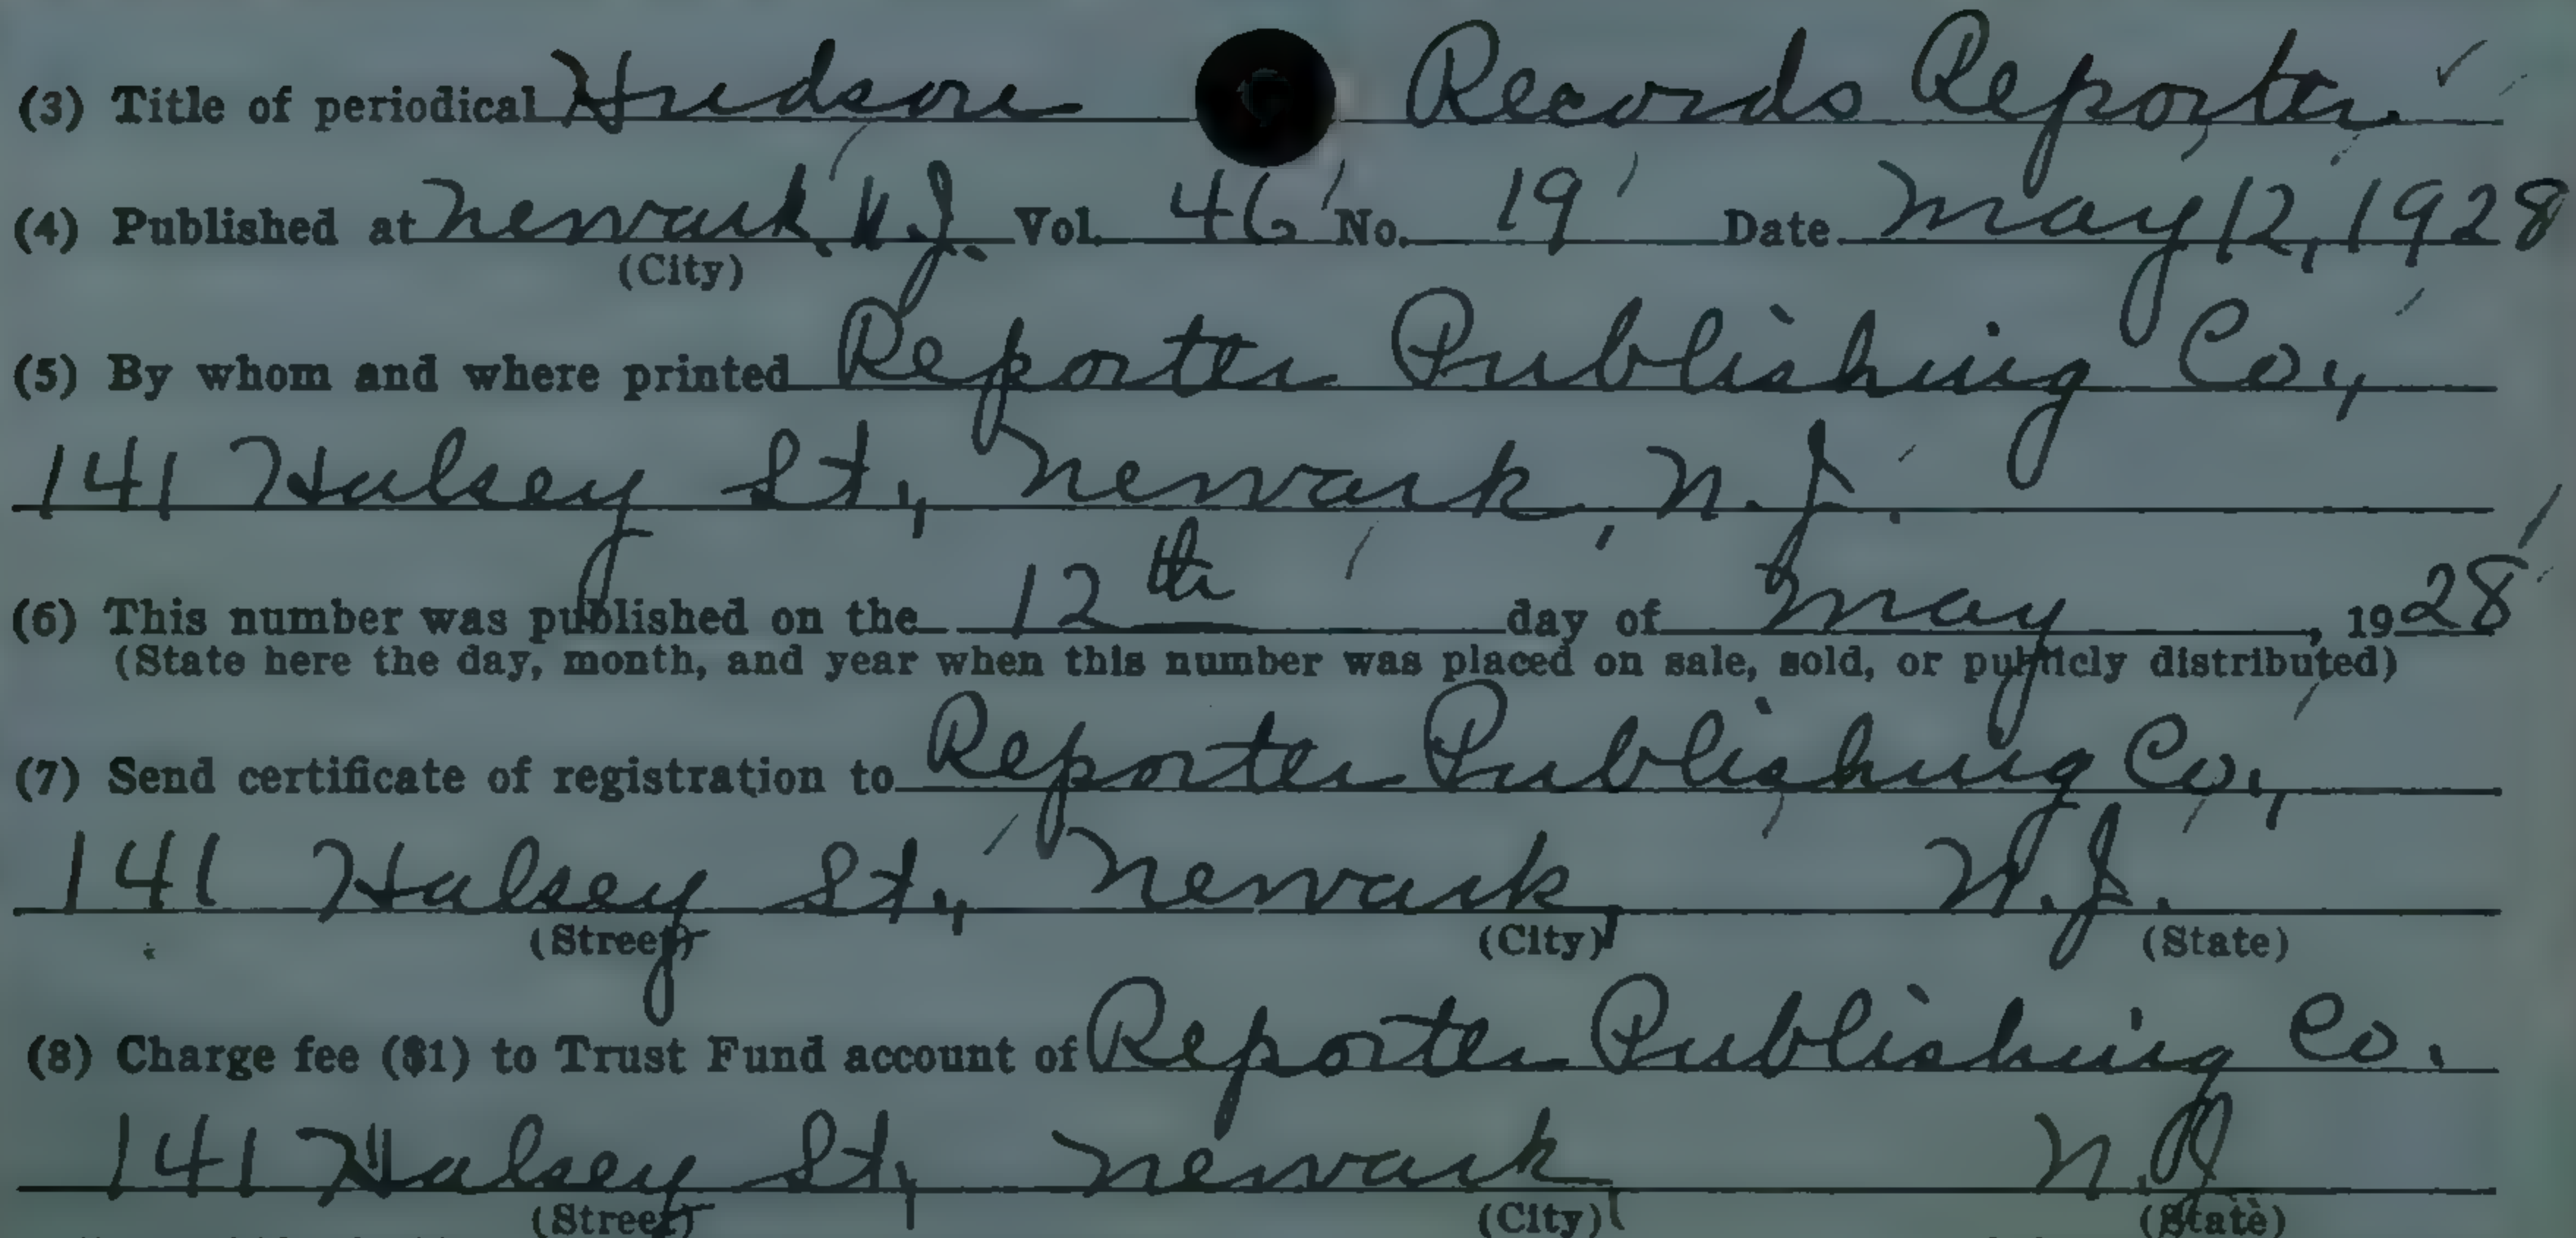 (3) Title of periodical Hudson Records Reporter
(4) Published at Newark, N.J. Vol. 46 No. 19 Date May 12, 1928
(City)
(5) By whom and where printed Reporter Publishing Co.,
141 Halsey St., Newark, N.J.
(6) This number was published on the 12th day of May, 1928
(State here the day, month, and year when this number was placed on sale, sold, or publicly distributed)
(7) Send certificate of registration to Reporter Publishing Co.,
141 Halsey St., Newark, N.J.
(Street) (City) (State)
(8) Charge fee ($1) to Trust Fund account of Reporter Publishing Co.
141 Halsey St, Newark, N.J
(Street) (City) (State)